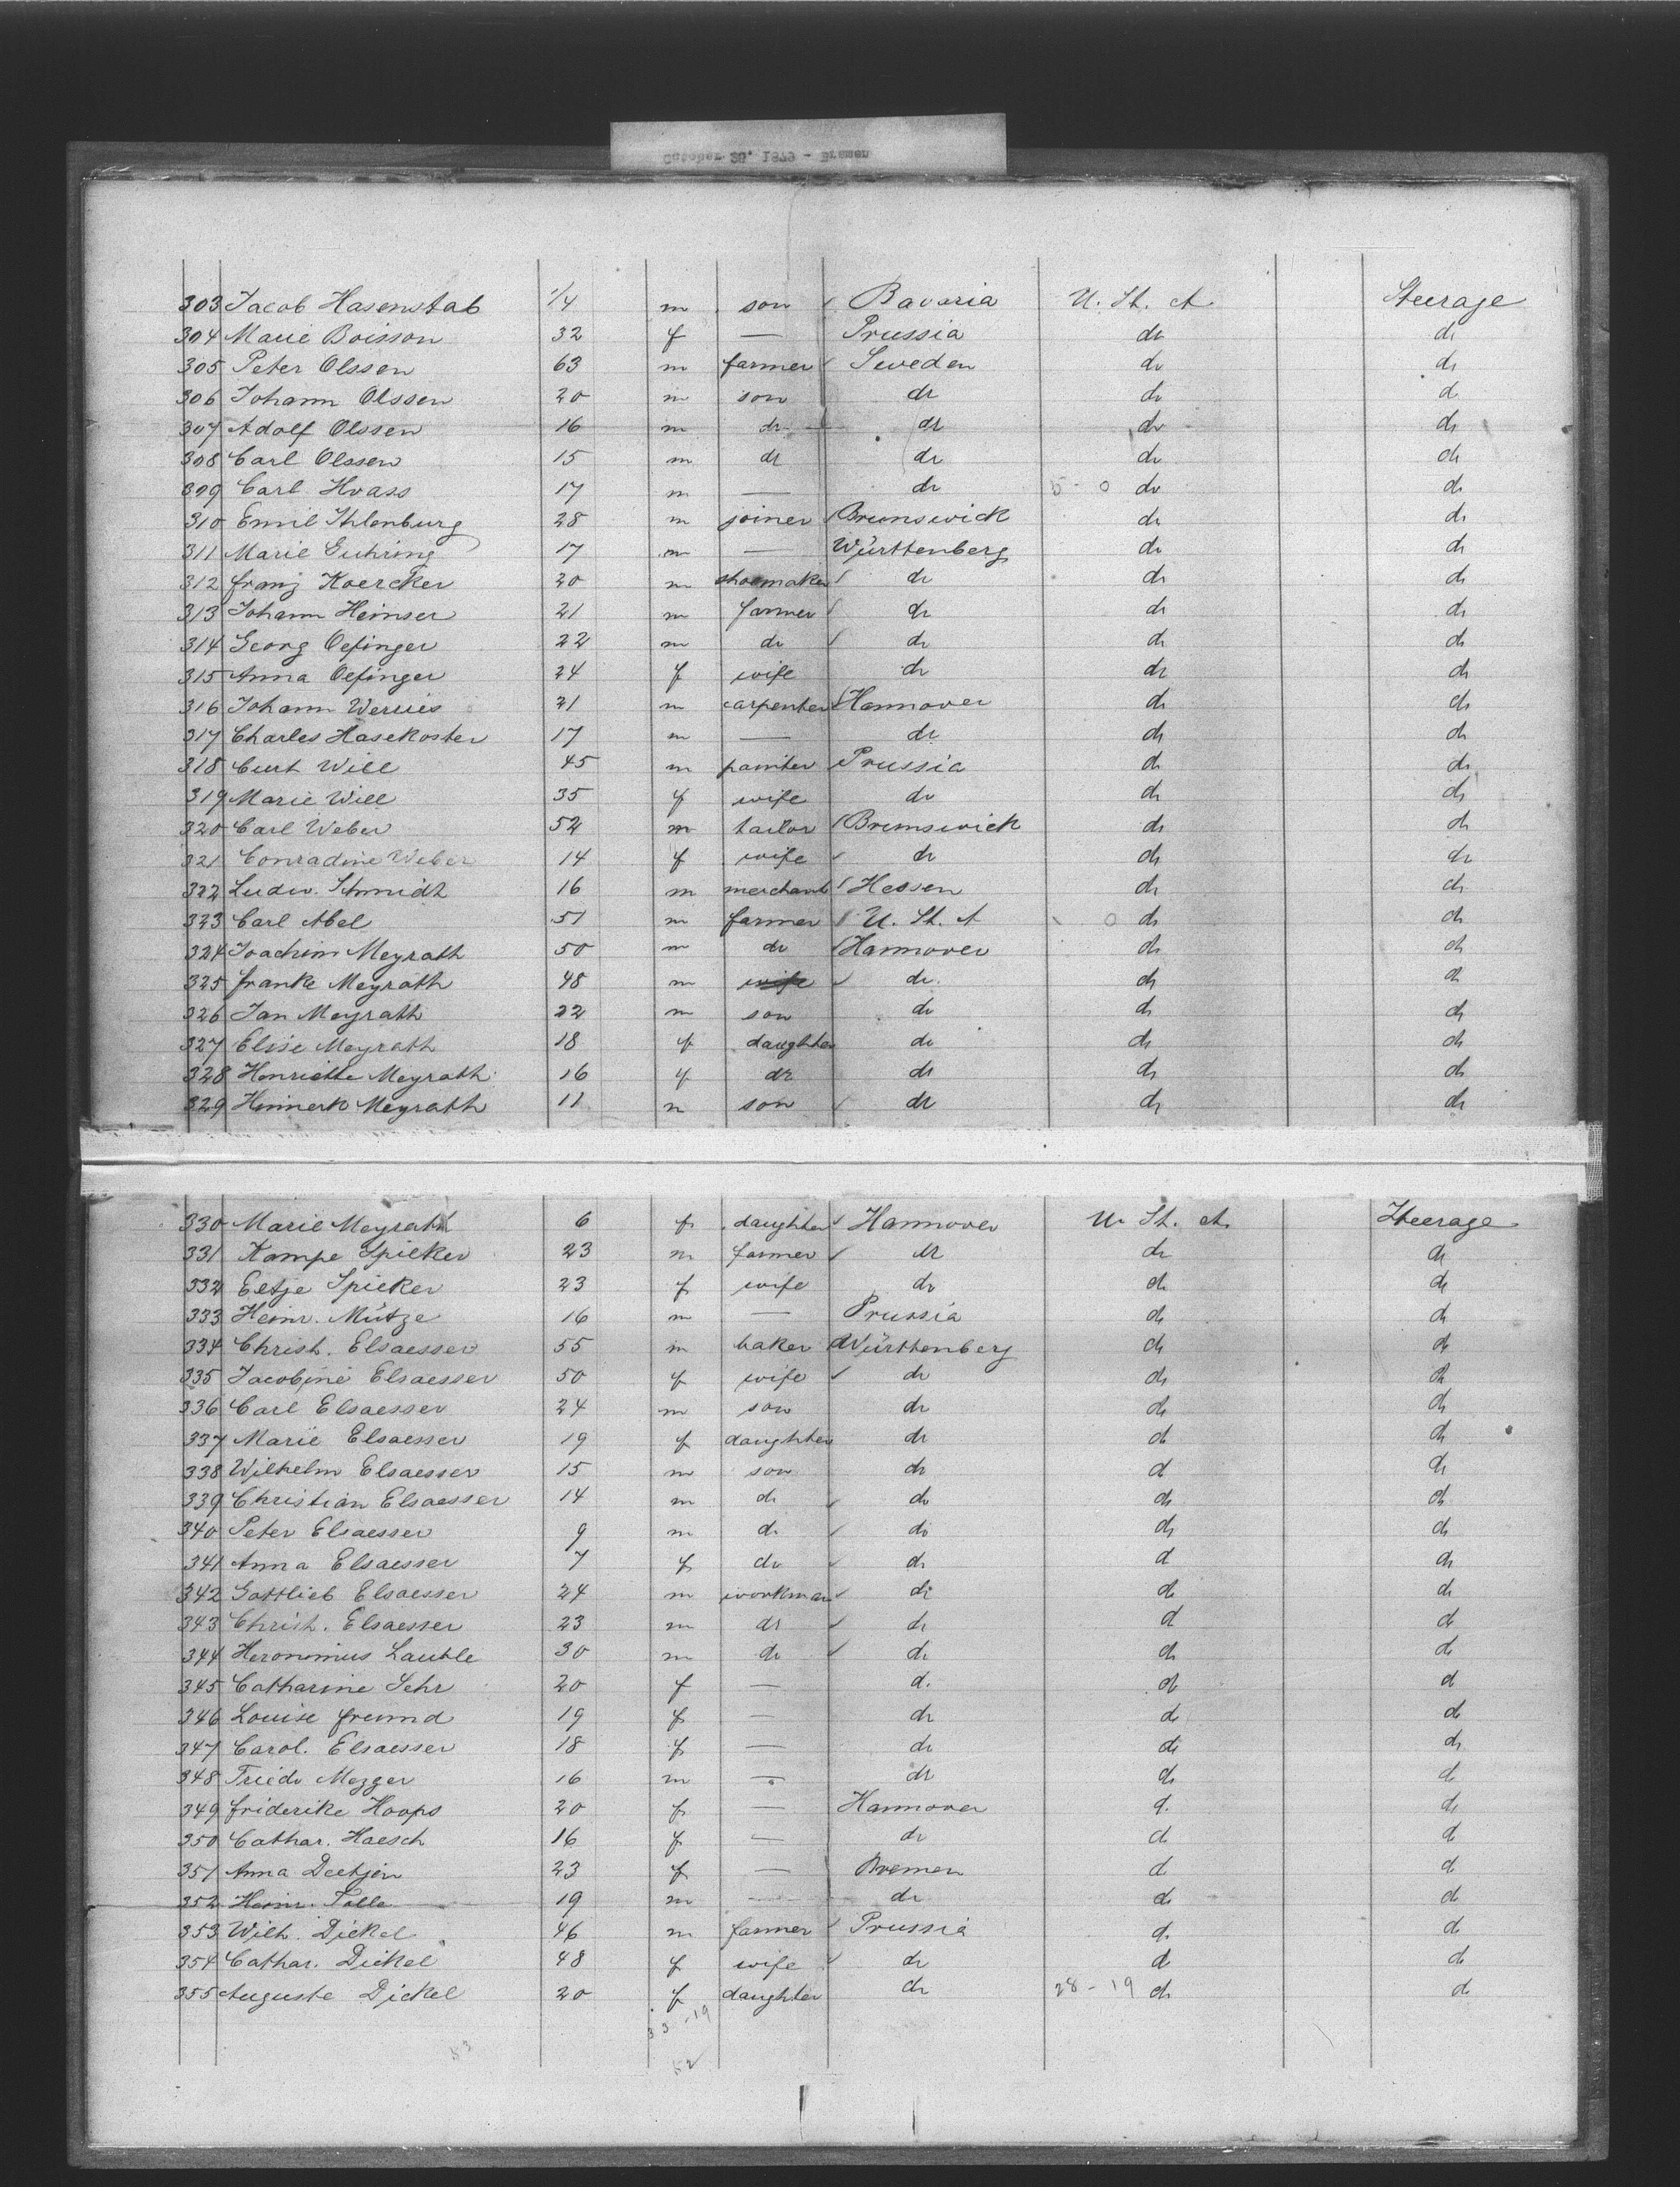 October 30, 1879 - Bremen
303 Jacob Hasenstab 1/4 m son Bavaria U. St. A. Steerage
304 Marie Boisson 32 f — Prussia do do
305 Peter Olssen 63 m farmer Sweden do do
306 Johann Olssen 20 m son do do do
307 Adolf Olssen 16 m do do do do
308 Carl Olssen 15 m do do do do
309 Carl Hvass 17 m — do 5 - 0 do do
310 Emil Ihlenburg 28 m joiner Brunswick do do
311 Marie Guhring 17 m — Württenberg do do
312 Franz Koercker 20 m shoemaker do do do
313 Johann Heinser 21 m farmer do do do
314 Georg Oefinger 22 m do do do do
315 Anna Oefinger 24 f wife do do do
316 Johann Werries 21 m carpenter Hannover do do
317 Charles Hasekoster 17 m — do do do
318 Curt Will 45 m painter Prussia do do
319 Marie Will 35 f wife do do do
320 Carl Weber 52 m tailor Brunswick do do
321 Conradine Weber 14 f wife do do do
322 Ludw. Schmidt 16 m merchant Hessen do do
323 Carl Abel 51 m farmer U. St. A 0 do do
324 Joachim Meyrath 50 m do Hannover do do
325 Franke Meyrath 48 m wife do do do
326 Jan Meyrath 22 m son do do do
327 Elise Meyrath 18 f daughter do do do
328 Henriette Meyrath 16 f do do do do
329 Hinnerk Meyrath 11 m son do do do
330 Marie Meyrath 6 f daughter Hannover U. St. A. Steerage
331 Kampe Spieker 23 m farmer do do do
332 Eetje Spieker 23 f wife do do do
333 Heinr. Mütze 16 m — Prussia do do
334 Christ. Elsaesser 55 m baker Württenberg do do
335 Jacobine Elsaesser 50 f wife do do do
336 Carl Elsaesser 24 m son do do do
337 Marie Elsaesser 19 f daughter do do do
338 Wilhelm Elsaesser 15 m son do do do
339 Christian Elsaesser 14 m do do do do
340 Peter Elsaesser 9 m do do do do
341 Anna Elsaesser 7 f do do do do
342 Gottlieb Elsaesser 24 m workman do do do
343 Christ. Elsaesser 23 m do do do do
344 Heronimus Lauble 30 m do do do do
345 Catharine Sehr 20 f — do do do
346 Louise Freund 19 f — do do do
347 Carol. Elsaesser 18 f — do do do
348 Friedr Mezger 16 m — do do do
349 Friderike Hoops 20 f — Hannover do do
350 Cathar. Haesch 16 f — do do do
351 Anna Deetjen 23 f — Bremen do do
352 Heinr. Tolle 19 m — do do do
353 Wilh. Dickel 46 m farmer Prussia do do
354 Cathar. Dickel 48 f wife do do do
355 Auguste Dickel 20 f daughter do 28 - 19 do do
33 - 19
53
52